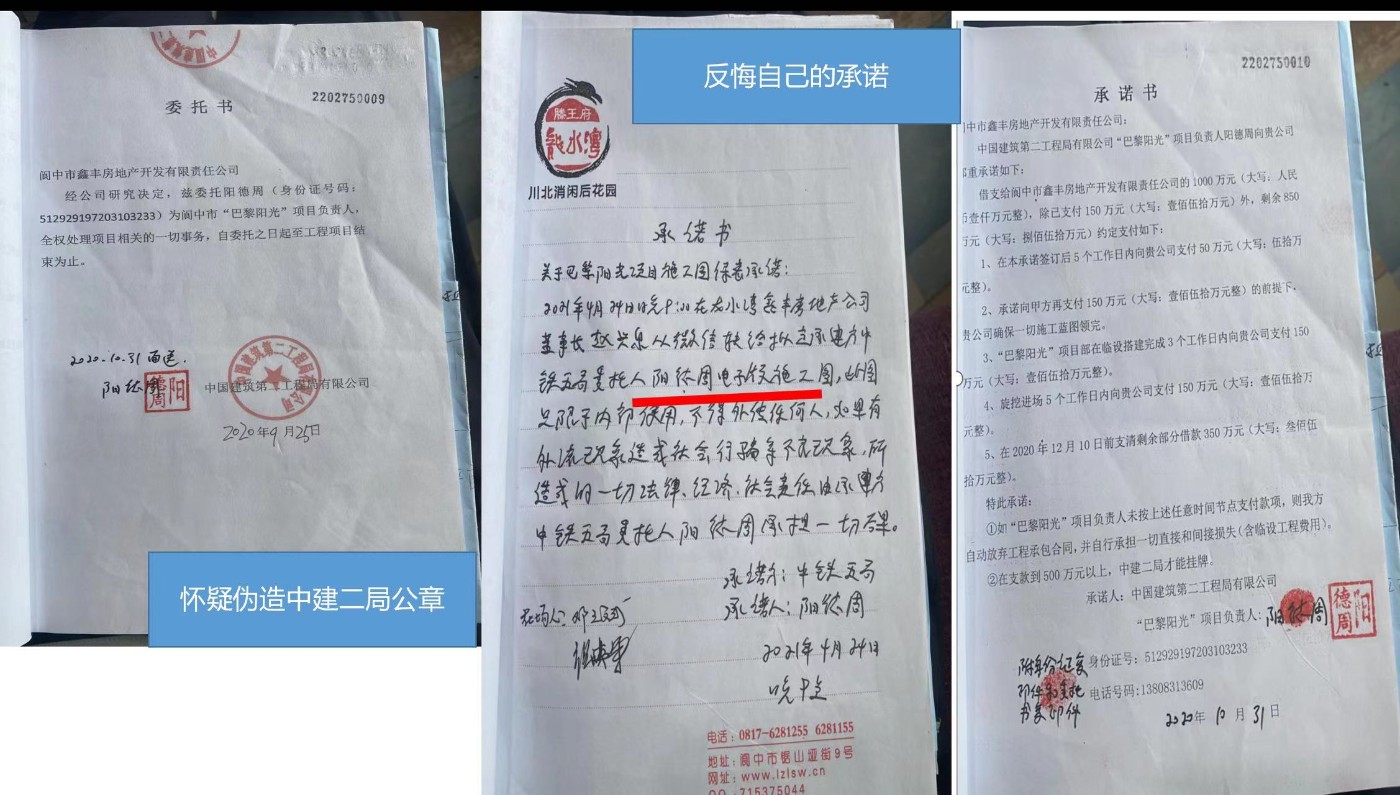 2202750009
委托书
阆中市鑫丰房地产开发有限责任公司
经公司研究决定，兹委托阳德周（身份证号码：
512929197203103233）为阆中市“巴黎阳光”项目负责人，
全权处理项目相关的一切事务，自委托之日起至工程项目结
束为止。
2020.10.31面送.
阳德周
德阳周
中国建筑第二工程局有限公司
2020年9月25日
怀疑伪造中建二局公章
反悔自己的承诺
滕王府
龍水灣
川北消闲后花园
承诺书
关于巴黎阳光项目施工图保密承诺：
2021年4月24日晚9:00在龙水湾鑫丰房地产公司
董事长赵兴泉从微信转给拟定承建方中
铁五局委托人阳德周电子版施工图，此图
只限于内部使用，不得外传任何人，如果有
外流现象造成社会行骗等不良现象，所
造成的一切法律、经济、社会责任由承建方
中铁五局委托人阳德周承担一切后果。
承诺方：中铁五局
在场人：
承诺人：阳德周
2021年4月24日
电话：0817-6281255 6281155
地址：阆中市锯山垭街9号
网址：www.lzlsw.cn
QQ：715375044
2202750010
承诺书
中市鑫丰房地产开发有限责任公司：
中国建筑第二工程局有限公司“巴黎阳光”项目负责人阳德周向贵公司
重承诺如下：
借支给阆中市鑫丰房地产开发有限责任公司的1000万元（大写：人民
壹仟万元整），除已支付150万元（大写：壹佰伍拾万元）外，剩余850
万元（大写：捌佰伍拾万元）约定支付如下：
1、在本承诺签订后5个工作日内向贵公司支付50万元（大写：伍拾万
元整）。
2、承诺向甲方再支付150万元（大写：壹佰伍拾万元整）的前提下，
贵公司确保一切施工蓝图领完。
3、“巴黎阳光”项目部在临设搭建完成3个工作日内向贵公司支付150
万元（大写：壹佰伍拾万元整）。
4、旋挖进场5个工作日内向贵公司支付150万元（大写：壹佰伍拾万
元整）。
5、在2020年12月10日前支清剩余部分借款350万元（大写：叁佰伍
拾万元整）。
特此承诺：
①如“巴黎阳光”项目负责人未按上述任意时间节点支付款项，则我方
自动放弃工程承包合同，并自行承担一切直接和间接损失(含临设工程费用)。
②在支款到500万元以上，中建二局才能挂牌。
承诺人：中国建筑第二工程局有限公司
“巴黎阳光”项目负责人：阳德周
德阳周
附身份证复
身份证号：512929197203103233
印件和委托
电话号码:13808313609
书复印件
2020年10月31日